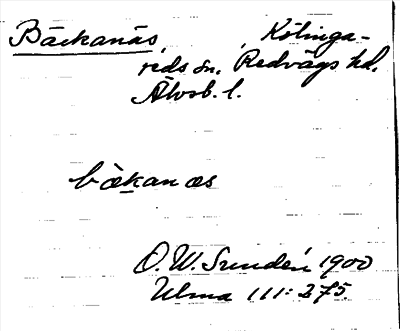 Bäckanäs, Kölinga-
reds sn, Redvägs hd.
Älvsb. l.
bækanæs
O. W. Sundén 1900
Ulma 111:275.